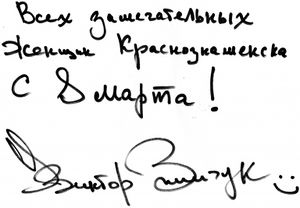 Всех зажигательных
Женщин Краснознаменска
С 8 марта!
Виктор Зинчук